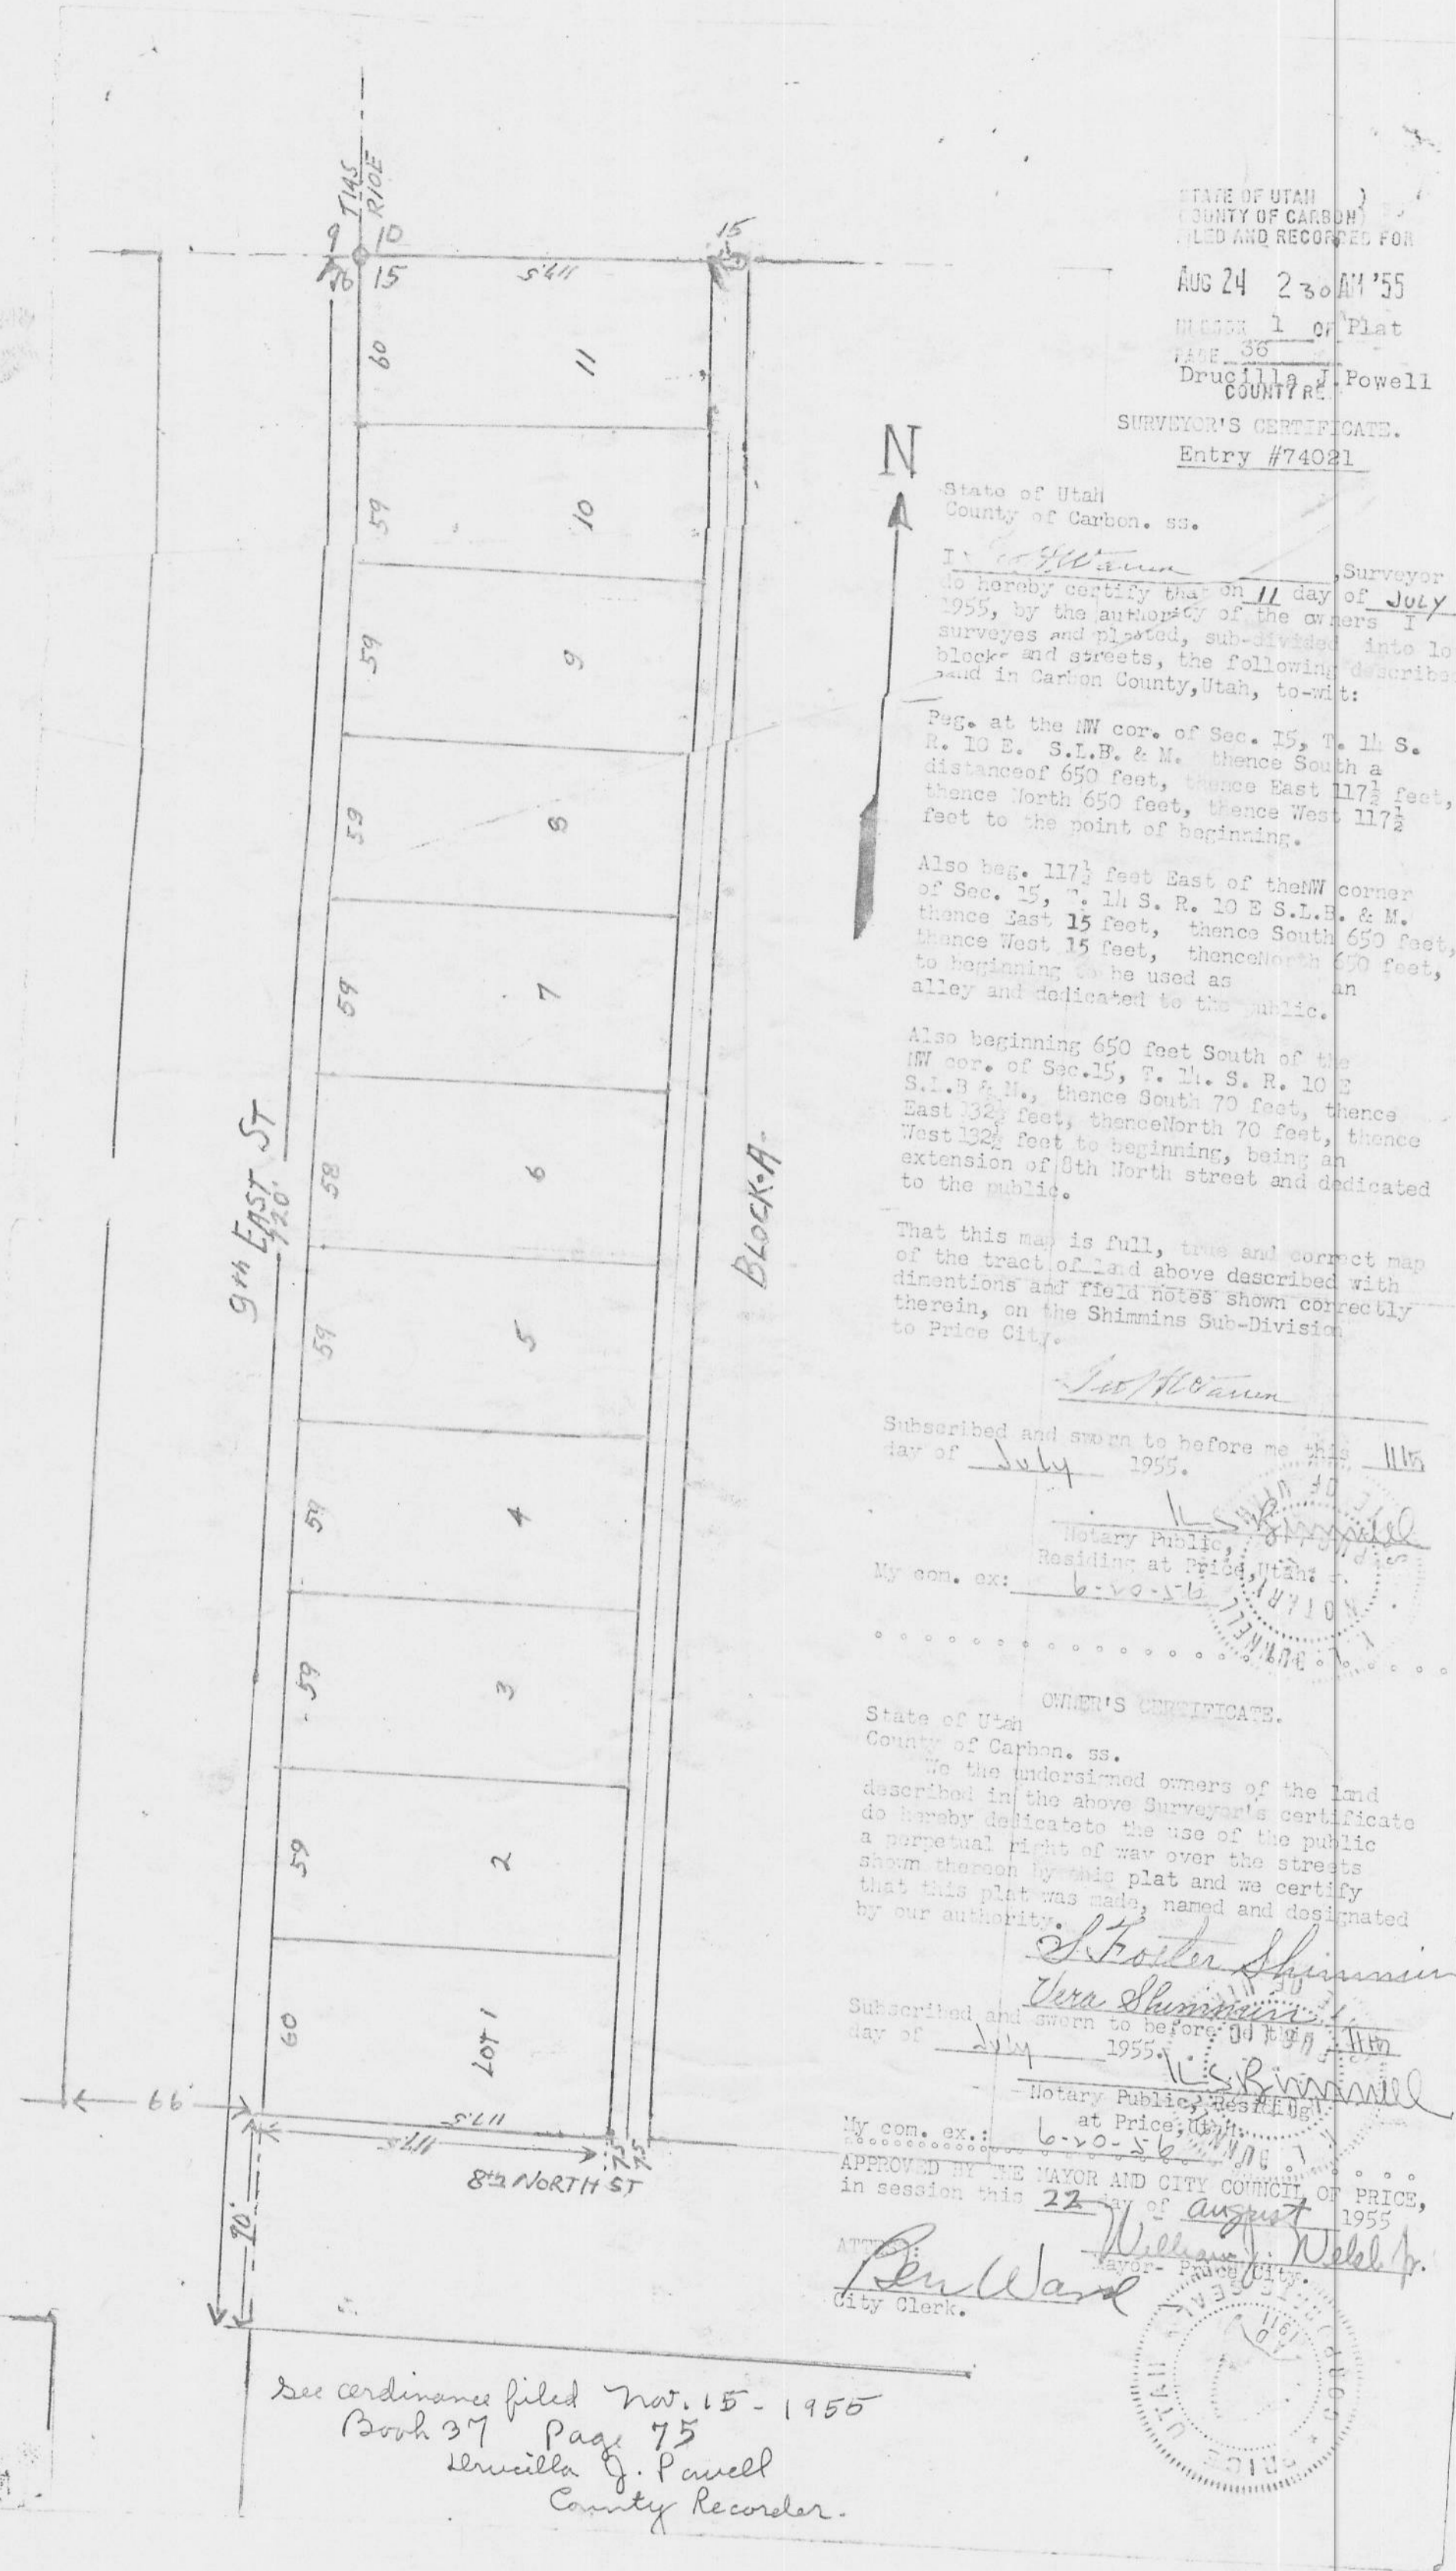 T14S
R10E
9 10
16 15
117.5
15
60
11
59
10
59
9
59
8
59
7
58
6
59
5
59
4
59
3
59
2
60
LOT 1
9th EAST ST
720'
BLOCK·A·
66'
117.5
117.5
7.5
7.5
8th NORTH ST
70'
N
See ordinance filed Nov. 15 - 1955
Book 37 Page 75
Drucilla J. Powell
County Recorder.
STATE OF UTAH )
COUNTY OF CARBON)
FILED AND RECORDED FOR
AUG 24 2 30 AM '55
1 OF Plat
PAGE 36
Drucilla J. Powell
COUNTY RE
SURVEYOR'S CERTIFICATE.
Entry #74021
State of Utah
County of Carbon. ss.
I Geo H Warren ,Surveyor
do hereby certify that on 11 day of JULY
1955, by the authority of the owners I
surveyes and platted, sub-divided into lo
blocks and streets, the following describe
land in Carbon County,Utah, to-wit:
Beg. at the NW cor. of Sec. 15, T. 14 S.
R. 10 E. S.L.B. & M. thence South a
distanceof 650 feet, thence East 117½ feet,
thence North 650 feet, thence West 117½
feet to the point of beginning.
Also beg. 117½ feet East of theNW corner
of Sec. 15, T. 14 S. R. 10 E S.L.B. & M.
thence East 15 feet, thence South 650 feet,
thence West 15 feet, thenceNorth 650 feet,
to beginning to be used as an
alley and dedicated to the public.
Also beginning 650 feet South of the
NW cor. of Sec.15, T. 14. S. R. 10 E
S.L.B & M., thence South 70 feet, thence
East 132½ feet, thenceNorth 70 feet, thence
West 132½ feet to beginning, being an
extension of 8th North street and dedicated
to the public.
That this map is full, true and correct map
of the tract of land above described with
dimentions and field notes shown correctly
therein, on the Shimmins Sub-Division
to Price City.
Geo H Warren
Subscribed and sworn to before me this 11th
day of July 1955.
Notary Public,
Residing at Price,Utah.
My con. ex: 6-20-56
OWNER'S CERTIFICATE.
State of Utah
County of Carbon. ss.
We the undersigned owners of the land
described in the above Surveyor's certificate
do hereby dedicateto the use of the public
a perpetual right of way over the streets
shown thereon by this plat and we certify
that this plat was made, named and designated
by our authority.
S. Foster Shimmin
Vera Shimmin
Subscribed and sworn to before me this 11th
day of July 1955.
Notary Public, Residing
at Price,Utah.
My com. ex.: 6-20-56
APPROVED BY THE MAYOR AND CITY COUNCIL OF PRICE,
in session this 22 day of August 1955
William J. Welsh Jr.
Mayor- Price City.
ATTEST:
Ben Ward
City Clerk.